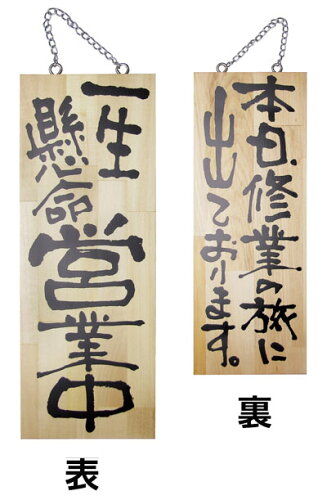 一生
懸命
営業中
表
本日、修業の旅に
出ております。
裏